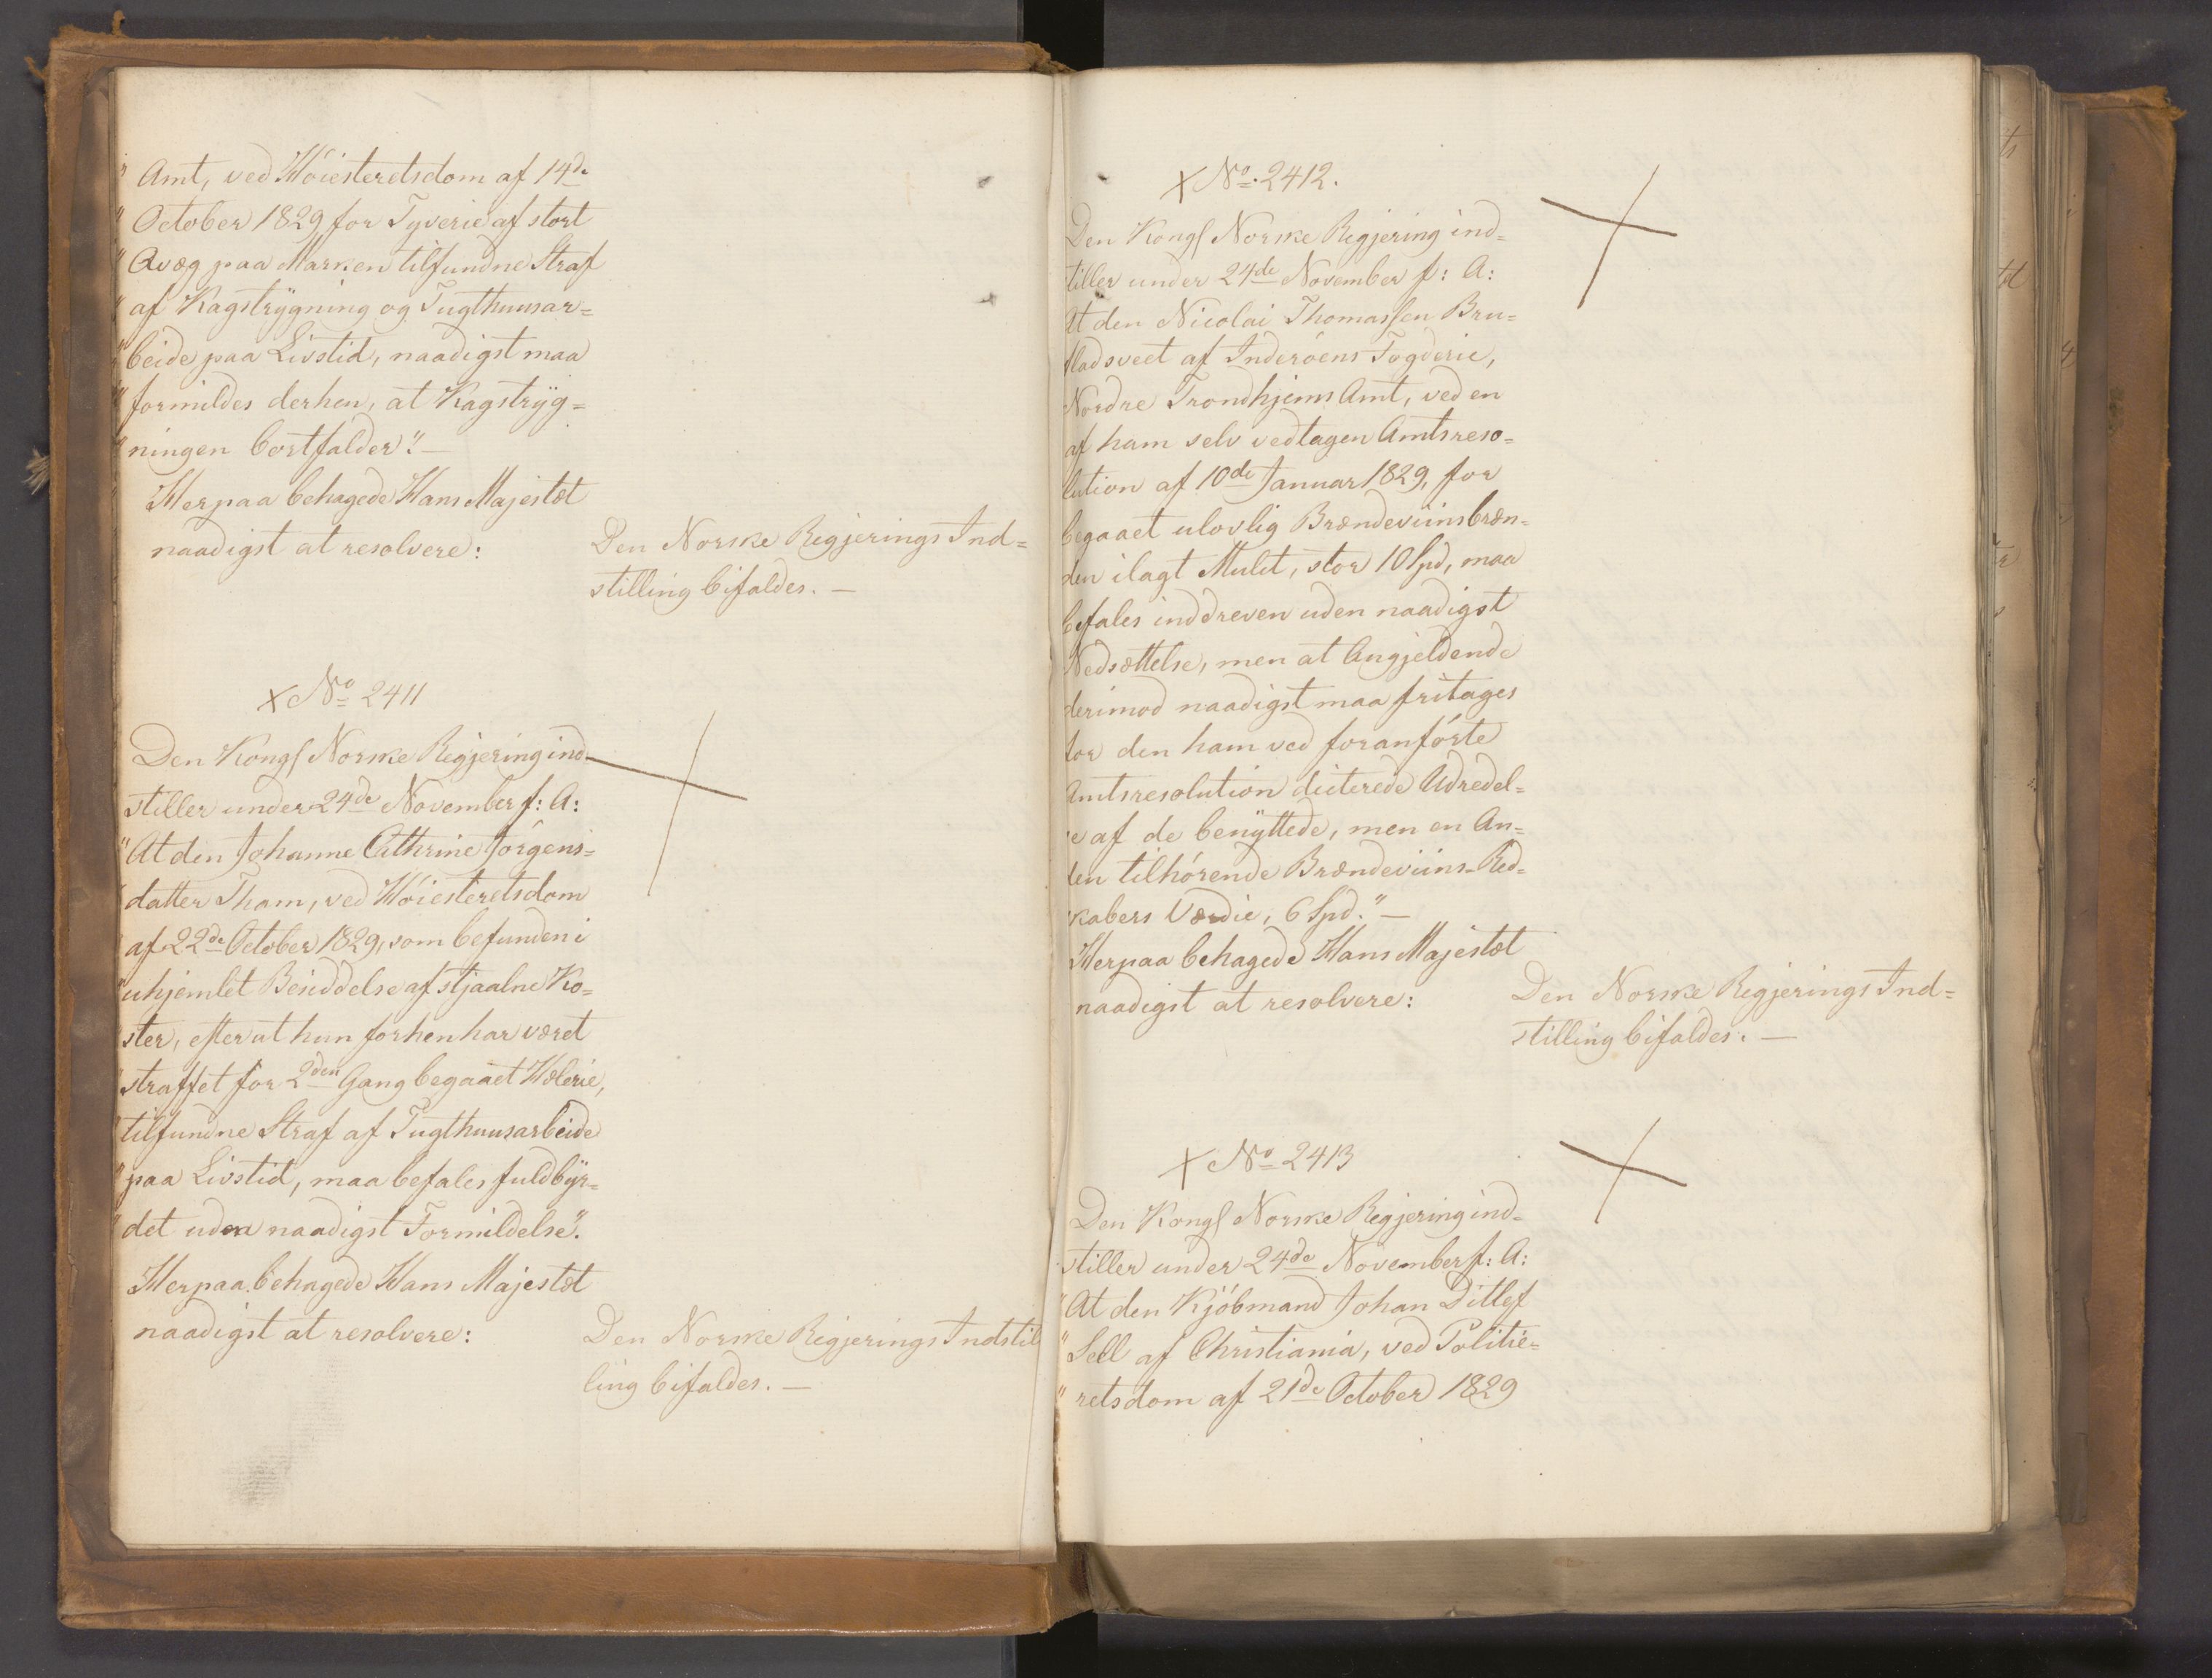 " Amt, ved Høiesteretsdom af 14de
" October 1829 for Tyverie af stort
" Qvæg paa Marken tilfundne Straf
" af Kagstrygning og Tugthuusar=
" beide paa Livstid, naadigst maa
" formildes derhen, at Kagstryg=
" ningen bortfalder". —
Herpaa behagede Hans Majestæt
naadigst at resolvere:
Den Norske Regjerings Ind=
stilling bifaldes. —
x No 2411
Den Kongl Norske Regjering ind=
stiller under 24de November f: A:
"At den Johanne Cathrine Jørgens=
" datter Tham, ved Høiesteretsdom
" af 22de October 1829, som befunden i
" uhjemlet Besiddelse af stjaalne Ko=
ster, efter at hun forhen har været
" straffet for 2den Gang begaaet Hælerie,
" tilfundne Straf af Tugthuusarbeide
" paa Livstid, maa befales fuldbyr=
" det uden naadigst Formildelse".
Herpaa behagede Hans Majestæt
naadigst at resolvere:
Den Norske Regjerings Indstil
ling bifaldes. —
x No. 2412.
Den Kongl Norske Regjering ind=
tiller under 24de November f: A:
At den Nicolai Thomassen Bru=
sladsveet af Inderøens Fogderie,
Nordre Trondhjems Amt, ved en
af ham selv vedtagen Amtsreso=
lution af 10de Januar 1829, for
begaaet ulovlig Brændeviinsbræn=
den ilagt Mulct, stor 10 Spd, maa
befales inddreven uden naadigst
Nedsættelse, men at Angjeldende
derimod naadigst maa fritages
for den ham ved foranførte
Amtsresolution dicterede Udredel=
se af de benyttede, men en An=
den tilhørende Brændeviins-Red=
skabers Værdie, 6 Spd." —
Herpaa behagede Hans Majestæt
naadigst at resolvere:
Den Norske Regjerings Ind=
stilling bifaldes. —
x No 2413
Den Kongl Norske Regjering ind=
stiller under 24de November f: A:
"At den Kjøbmand Johan Ditlef
" Sell af Christiania, ved Politie=
" retsdom af 21de October 1829